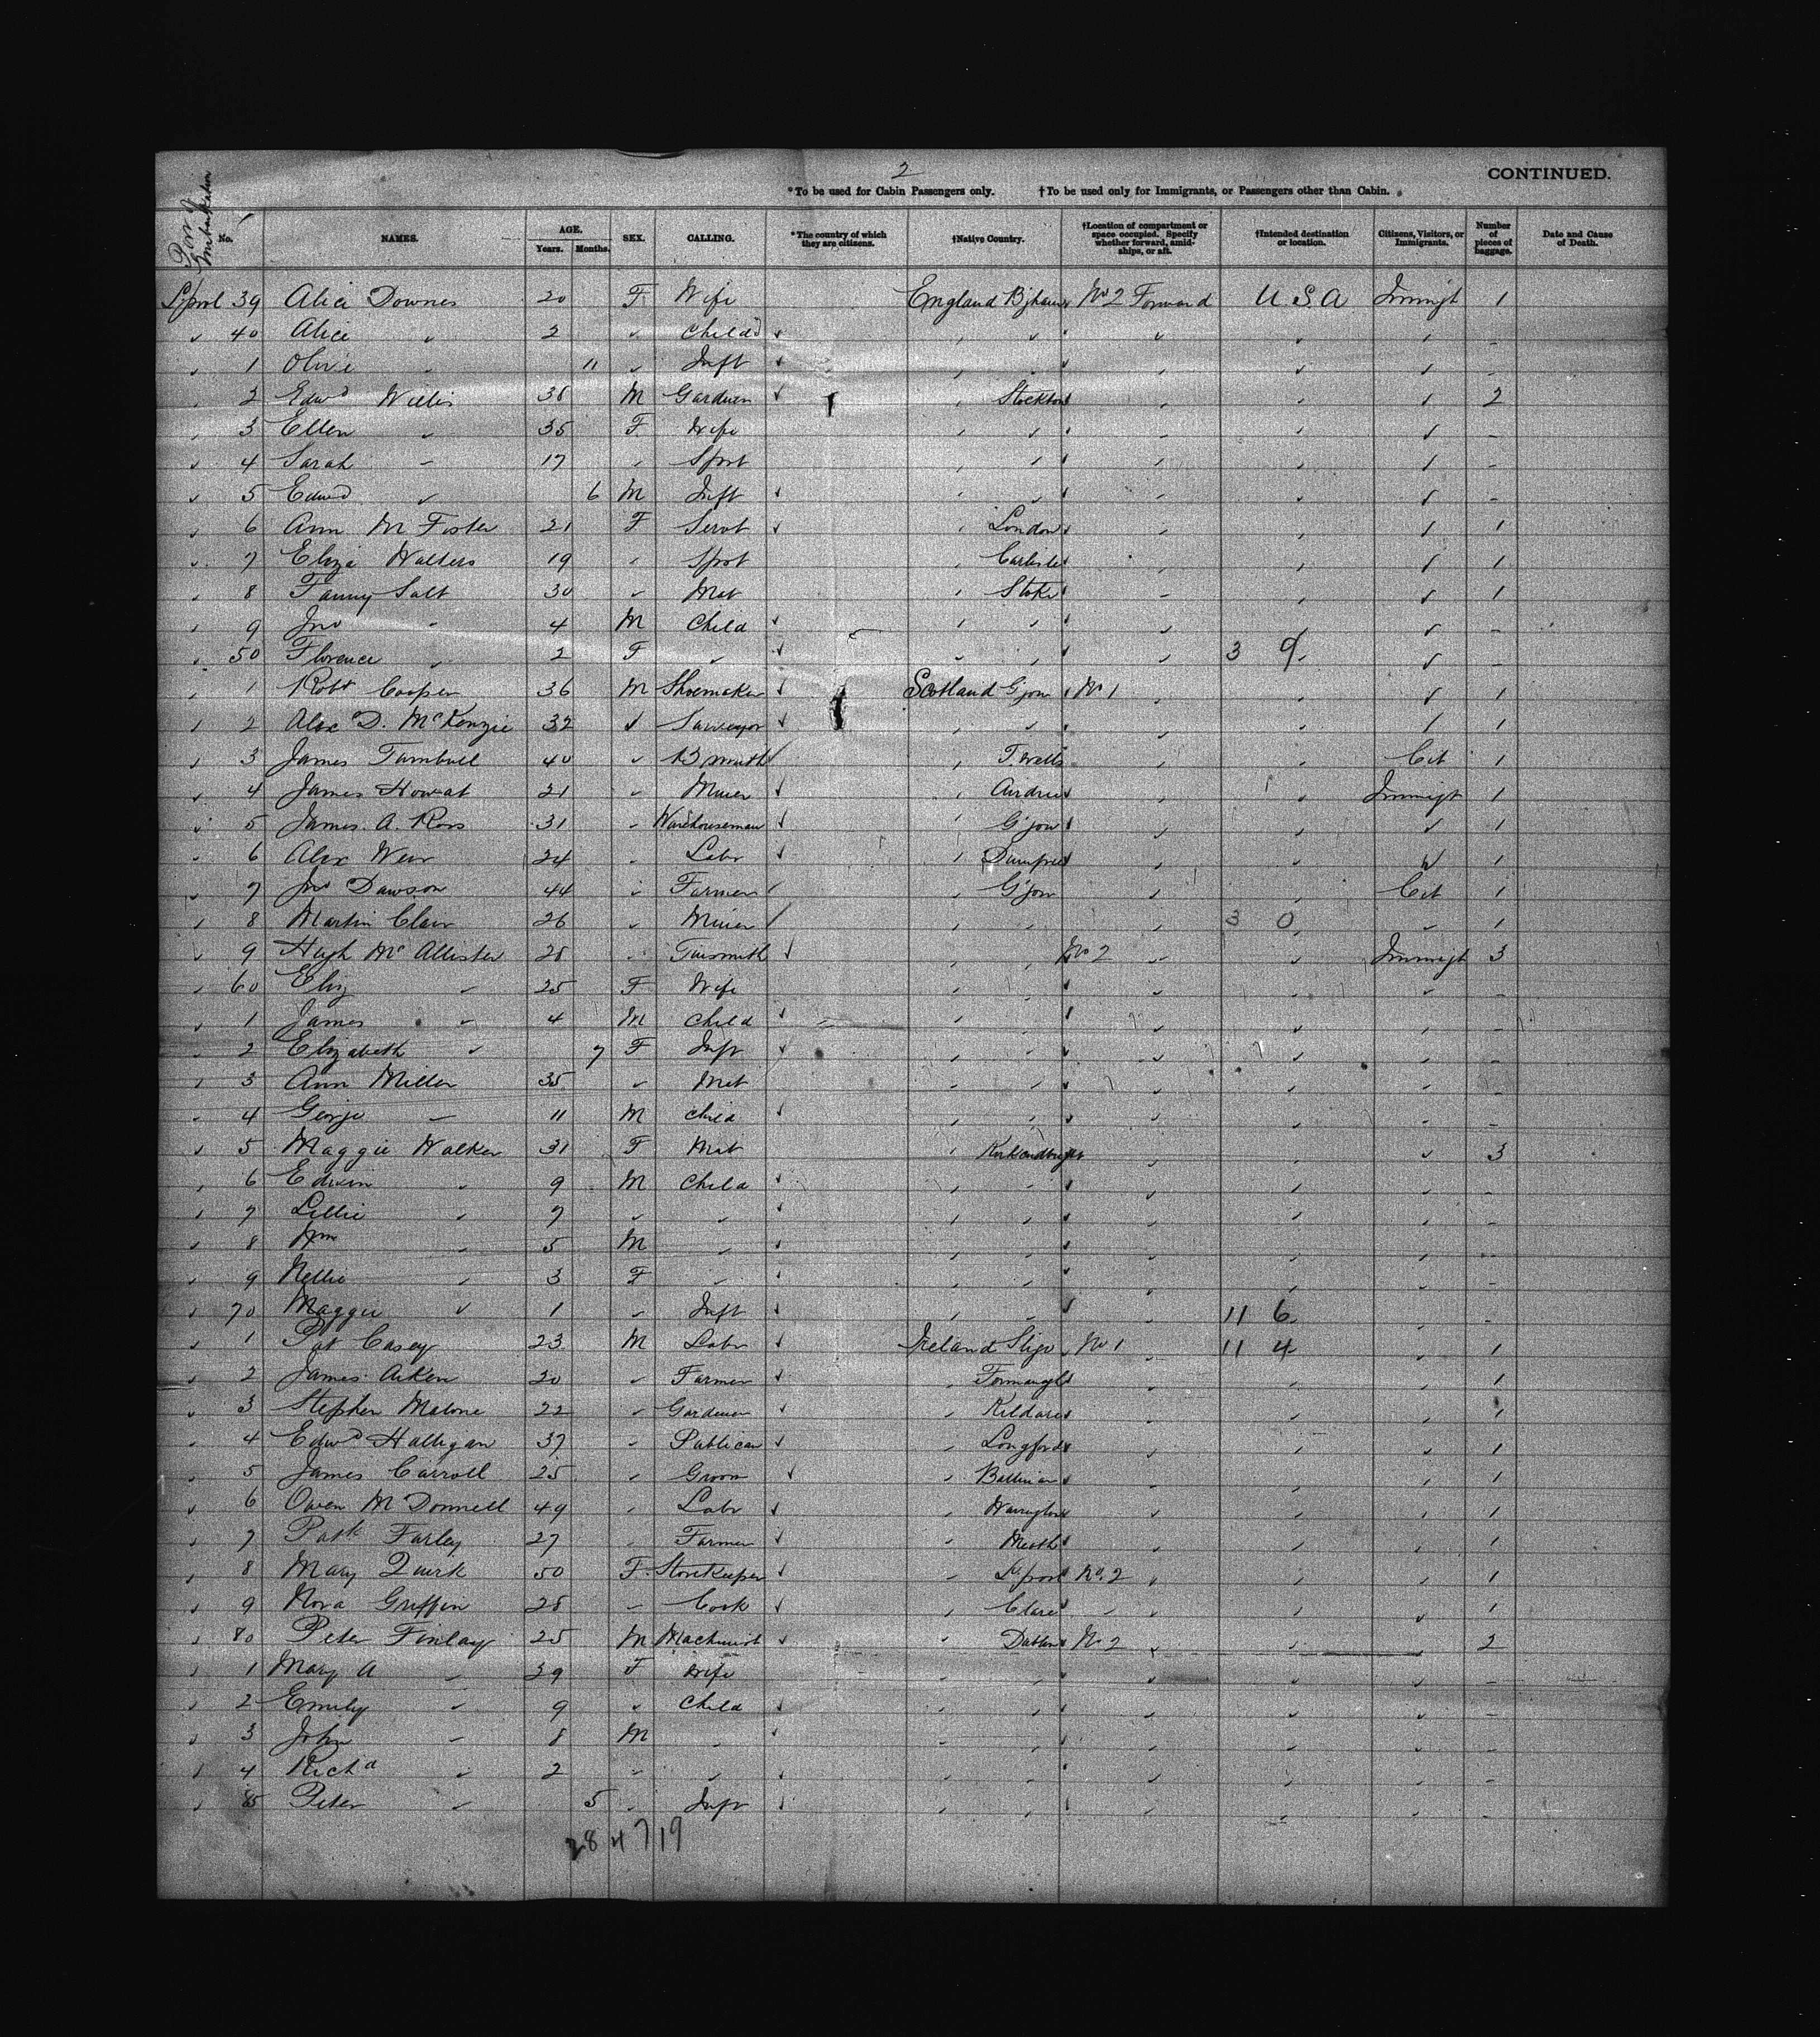 2
CONTINUED.
*To be used for Cabin Passengers only. †To be used only for Immigrants, or Passengers other than Cabin.
Port of Embarkation No. NAMES. AGE. Years. Months. SEX. CALLING. *The country of which they are citizens. †Native Country. †Location of compartment or space occupied. Specify whether forward, amidships, or aft. †Intended destination or location. Citizens, Visitors, or Immigrants. Number of pieces of baggage. Date and Cause of Death.
Lpool 39 Alice Downes 20 F Wife England B'ham No 2 Forward U S A Immigt 1
40 Alice 2 Child
1 Olive 11 Inft
2 Edwd Willis 38 M Gardner Stockton 2
3 Ellen 35 F Wife
4 Sarah 17 Spst
5 Edwd 6 M Inft
6 Ann M Foster 21 F Servt London 1
7 Eliza Walters 19 Spst Carlisle 1
8 Fanny Salt 30 Mat Stoke 1
9 Jno 4 M Child
50 Florence 2 F 3 9
1 Robt Cooper 36 M Shoemaker Scotland G'gow No 1 1
2 Alex D. McKenzie 32 Surveyor 1
3 James Turnbull 40 B smith T. Wells Cit 1
4 James Howat 21 Miner Airdrie Immigt 1
5 James A. Ross 31 Warehouseman G'gow 1
6 Alex Weir 24 Labr Dumfries 1
7 Jno Dawson 44 Farmer G'gow Cit 1
8 Martin Clair 26 Miner 3 0 1
9 Hugh McAllister 28 Tinsmith No 2 Immigt 3
60 Eliz 25 F Wife
1 James 4 M Child
2 Elizabeth 7 F Inft
3 Ann Miller 35 Mat
4 George 11 M Child
5 Maggie Walker 31 F Mat Kirkcudbright 3
6 Edwin 9 M Child
7 Lillie 7
8 Wm 5 M
9 Nellie 3 F
70 Maggie 1 Inft 11 6
1 Pat Casey 23 M Labr Ireland Sligo No 1 11 4 1
2 James Aiken 20 Farmer 1
3 Stephen Malone 22 Gardener Kildare 1
4 Edwd Halligan 37 Publican Longford 1
5 James Carroll 25 Groom 1
6 Owen McDonnell 49 Labr Warrington 1
7 Patk Farley 27 Farmer Meath 1
8 Mary Quirk 50 F Storekeeper L'pool No. 2 1
9 Nora Griffin 28 Cook Clare 1
80 Peter Finlay 25 M Machinist Dublin No 2 2
1 Mary A 29 F Wife
2 Emily 9 Child
3 John 8 M
4 Richd 2
85 Peter 5 Inft
28 4 7 19